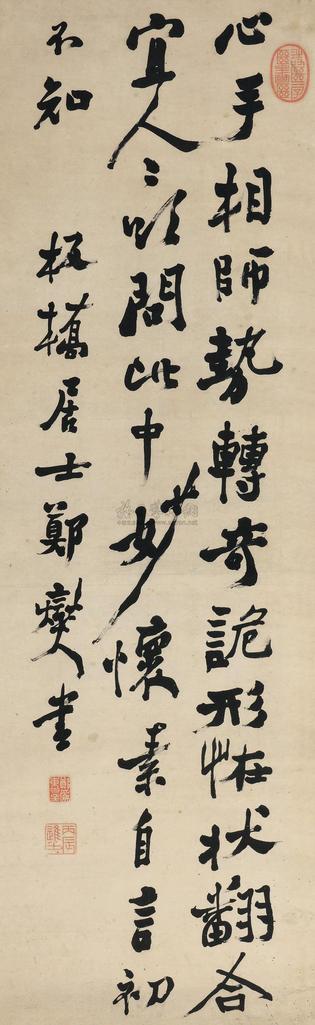 心手相師勢轉奇詭形怪状翻合
宜人〻欲問此中妙懷素自言初
不知
板橋居士鄭燮書